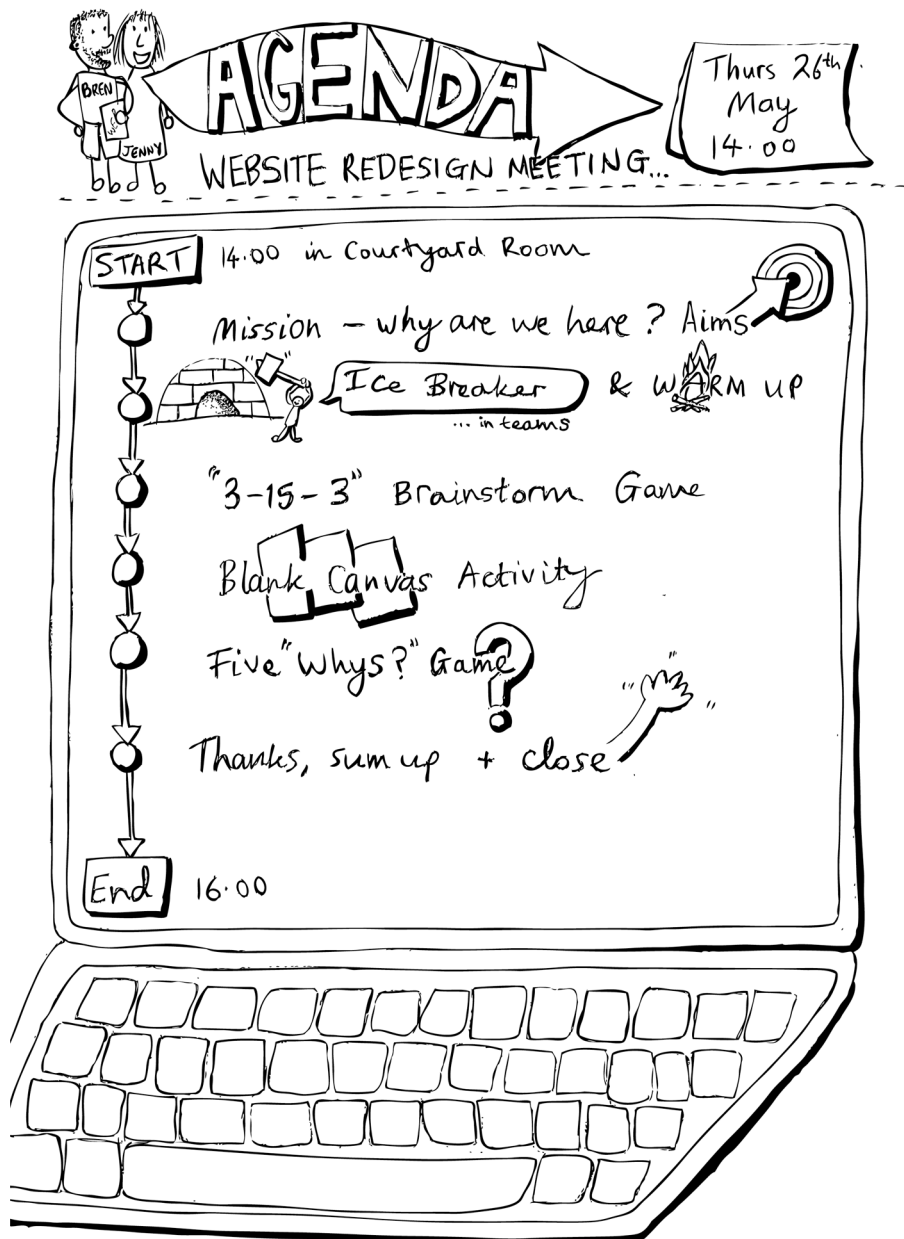 BREN
JENNY
AGENDA
WEBSITE REDESIGN MEETING...
Thurs 26th
May
14.00
START 14.00 in Courtyard Room
Mission - why are we here? Aims
Ice Breaker & WARM UP
... in teams
"3-15-3" Brainstorm Game
Blank Canvas Activity
Five "Whys?" Game
?
Thanks, sum up + close
End 16.00